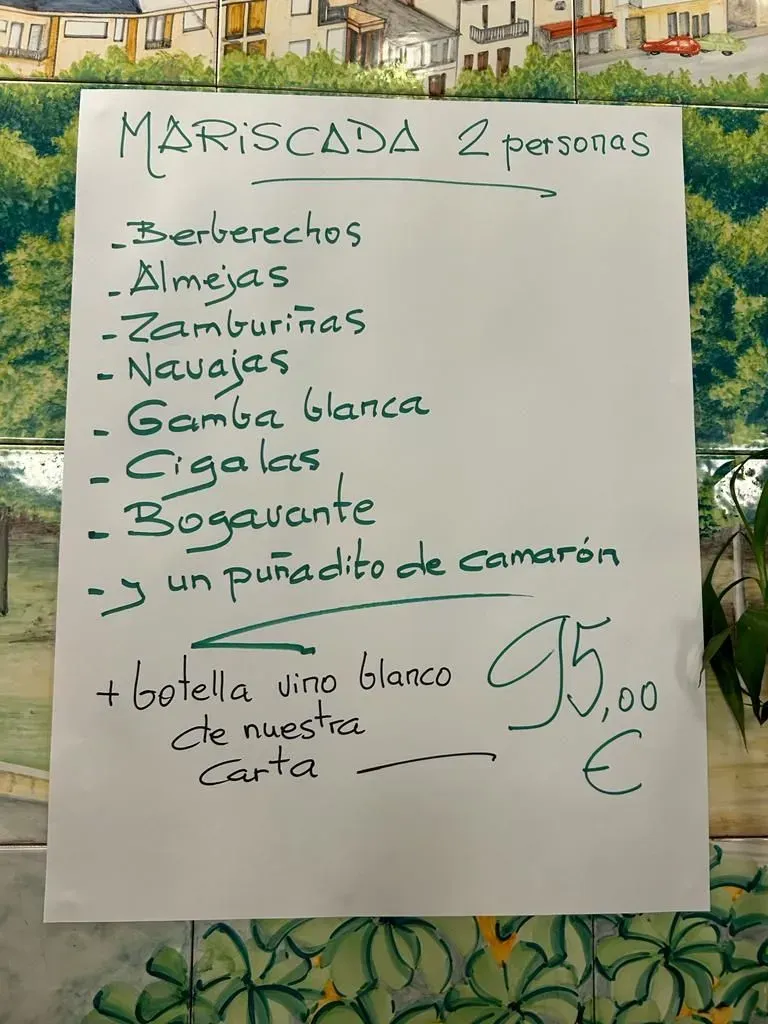 MARISCADA 2 personas
- Berberechos
- Almejas
- Zamburiñas
- Navajas
- Gamba blanca
- Cigalas
- Bogavante
- y un puñadito de camarón
+ botella vino blanco
de nuestra
carta — 95,00
€